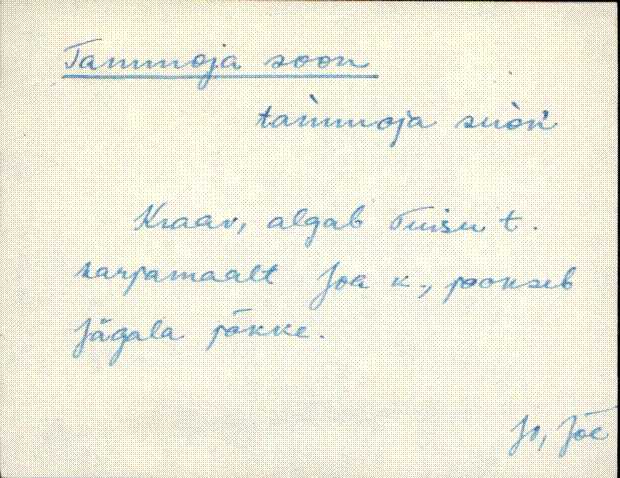 Tammoja soon
tàmmoja suòn'
Kraav, algab Tuisu t.
karjamaalt Joa k., jookseb
Jägala jõkke.
Jo, Jõe